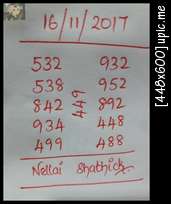 16/11/2017
532 932
538 952
842 892
449
934 448
499 488
Nellai Shathick
[448x600] upic.me